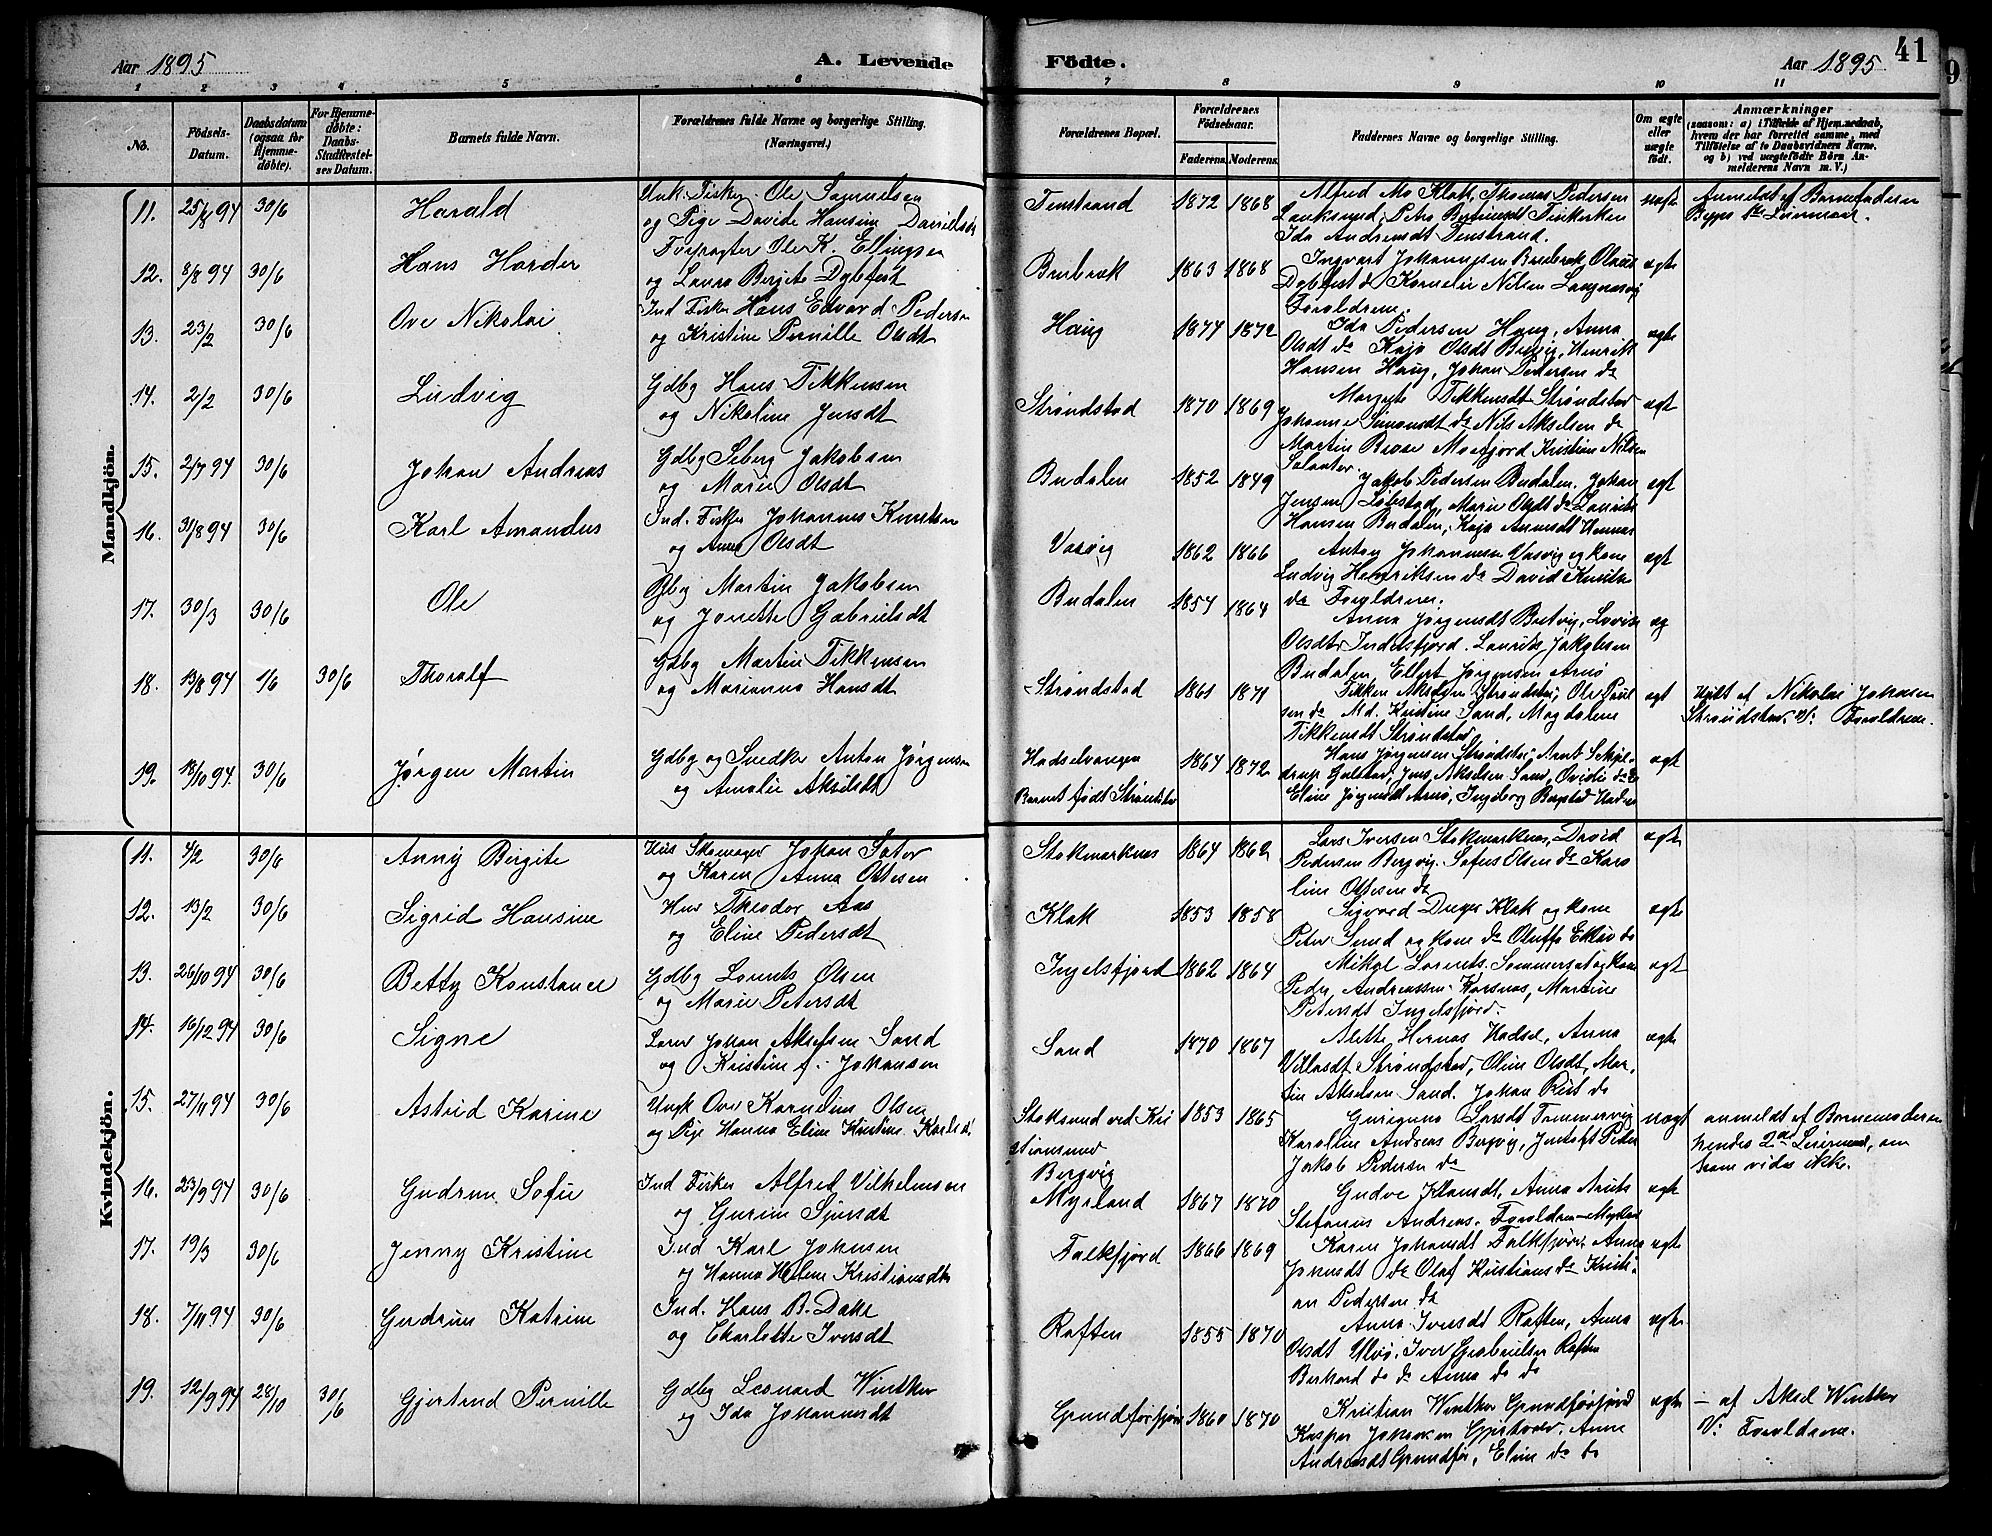 Aar 1895
A. Levende
Födte.
Aar 1895
41
1 2 3 4 5 6 7 8 9 10 11
No.
Födsels-Datum.
Daabsdatum (ogsaa for Hjemmedöbte).
For Hjemmedöbte: Daabs-Stadfæstelses Datum.
Barnets fulde Navn.
Forældrenes fulde Navne og borgerlige Stilling. (Næringsvei.)
Forældrenes Bopæl.
Forældrenes Födselsaar.
Faderens. Moderens.
Faddernes Navne og borgerlige Stilling.
Om ægte eller uægte födt.
Anmærkninger
(saasom: a) i Tilfælde af Hjemmedaab, hvem der har forrettet samme, med Tilföielse af to Daabsvidners Navne. og b) ved uægtefödte Börn Anmelderens Navn m. V.)
Mandkjön.
11. 25/8 94 30/6 Harald
Unk. Fisker Ole Samuelsen
og Pige Davide Hansine Davidsdt
Finstrand 1872 1868
Alfred Mo Klak, Thomas Pedersen
Ida Andreasdt Finstrand.
uægte
Anmeldt af Barnefaderen
Begges 1ste Leiermaal.
12. 8/8 94 30/6 Hans Harder
Forpagter Ole K. Ellingsen
og Laura Bergite Dybfest
1863 1868
Ingvart Johannesen
Forældrene.
ægte
13. 23/2 30/6 Ove Nikolai
Ind Fisker Hans Edvard Pedersen
og Kristine Pernille Olsdt
Haug 1874 1872
Ida Pedersen Haug, Anna
Olsdt do Kaja Olsdt Bergvig, Henrik
Hansen Haug, Johan Pedersen do
ægte
14. 2/2 30/6 Ludvig
Gdbg Hans Tikkensen
og Nikoline Jensdt
Strøndstad 1870 1869
Margrete Tikkensdt Strøndstad
Johanne Simonsdt do Nils Akselsen do
Martin Moefjord Kristian Nilsen
ægt
15. 2/7 94 30/6 Johan Andreas
Gdbg Seberg Jakobsen
og Marie Olsdt
Budalen 1852 1849
Jakob Pedersen Budalen. Johan
Jensen Løbstad, Marie Olsdt do Laurits
Hansen Budalen, Kaja
ægt
16. 31/8 94 30/6 Karl Amandus
Ind. Fisker Johannes Knutsen
og Anna Olsdt
Vasvig 1862 1866
Anton Johannesen Vasvig og kone
Ludvig Henriksen do David Knutsen
do Forældrene.
ægt
17. 30/3 30/6 Ole
Gbg Martin Jakobsen
og Jonette Gabrielsdt
Budalen 1854 1864
Anna Jørgensdt Lovise
Olsdt Indelsfjord. Laurits Jakobsen
Budalen Ellert Jørgensen Arnø
æg
18. 13/8 94 1/6 30/6 Thoralf
Gdbg Martin Tikkensen
og Marianna Hansdt
Strøndstad 1861 1871
Tikken Akselsen Strøndstad, Ole Paul
sen do Md. Kristine Sand, Magdalene
Tikkensdt Strøndstad
ægt
Hjdbt af Nikolai Johansen
Strøndstad, V: Forældrene.
19. 18/10 94 30/6 Jørgen Martin
Gdbg og Snedker Anton Jørgensen
og Amalie Akselsdt
Hadselvaregen
Barnet født Strøndstad
1864 1872
Hans Jørgensen Strøndstad, Arnt Schjel
drup Gulstad, Jens Akselsen Sand, Ovidie do
Eline Jørgensdt Arnø, Ingeborg
ægt
Kvindekjön.
11. 4/2 30/6 Anny Birgite
Hus Skomager Johan Sæter
og Karen Anna Ottesen
Stokmarknes 1864 1862
Lars Iversen Stokmarknes, David
Pedersen Bergvig. Sofus Olsen do Karo
line Ottesen do
ægt
12. 13/2 30/6 Sigrid Hansine
Hus Theodor Aas
og Eline Pedersdt
Klak 1853 1858
Sigvard Dreyer Klak og kone
Peter Sund og kone do Oluffa do
ægt
13. 26/10 94 30/6 Betty Konstanse
Gdbg Lorents Olsen
og Marie Petersdt
Ingelsfjord 1862 1864
Mikal Lorents. Sommerset og kone
Peder Andreassen Korsnes, Martine
Petersdt Ingelsfjord.
ægt
14. 16/12 94 30/6 Signe
Lærer Johan Akselsen Sand
og Kristine f. Johansen
Sand 1870 1867
Alette Hernes Hadsel, Anna
Villasdt Strøndstad, Oline Olsdt, Mar
tin Akselsen Sand. Johan Rist do
ægte
15. 27/11 94 30/6 Astrid Karine
Ungk Ove Kornelius Olsen
og Pige Hanna Eline Kristine Karlsd.
Stoksund ved Kri
stiansund
Bergvig
1853 1865
Karoline Andreas Bergvig, Jentoft Peder
Jakob Pedersen do
uægt
anmeldt af Barnemoderen
hendes 2det Leiermaal, om
ham vides ikke.
16. 23/9 94 30/6 Gudrun Sofie
Ind Fisker Alfred Vilhelmsen
og Gurine Sjursdt
Myrland 1867 1870
Gudve Klausdt, Anna Arnts
Stefanus Andreas. Forældrene Myrland
ægte
17. 19/3 30/6 Jenny Kristine
Ind Karl Johnsen
og Hanna Helene Kristiansdt
Falkfjord 1866 1869
Karen Johansdt Falkfjord. Anna
Jonsdt do Olaf Kristians do Kristi-
an Pedersen do
ægte
18. 7/11 94 30/6 Gudrun Katrine
Ind. Hans B. Dahl
og Charlotte Iversdt
Raften 1855 1870
Anna Iversdt Raften, Anna
Olsdt Ulvø. Iver Gabrielsen Raften
Berhard do do Anna do do
ægte
19. 12/9 94 28/10 30/6 Gjertrud Pernille
Gdbg Leonard Winther
og Ida Johannesdt
Grundførfjord 1860 1870
Kristian Winther Grundførfjord
Kasper Johansen Anne
Andreasdt Grundfør, Eline do do
ægte
– af Aksel Winther
V: Forældrene.